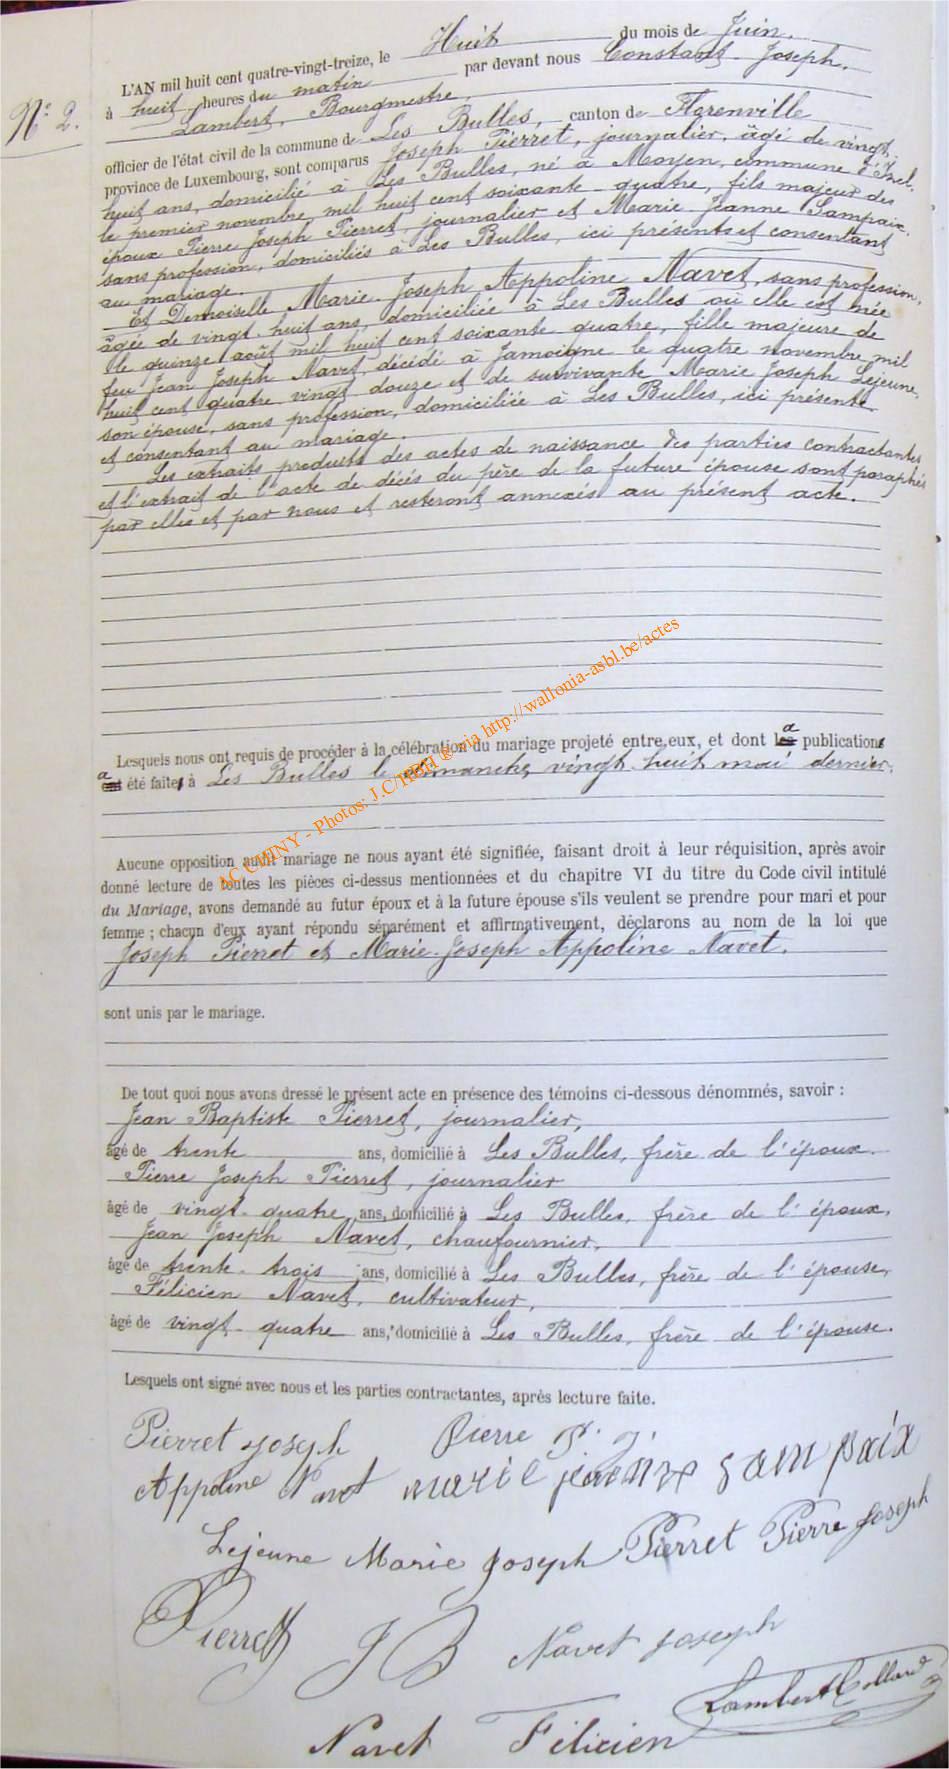 N° 2.
L'AN mil huit cent quatre-vingt-treize, le Huit du mois de Juin.
à huit heures du matin par devant nous Constant Joseph
Lambert, Bourgmestre,
officier de l'état civil de la commune de Les Bulles, canton de Florenville
province de Luxembourg, sont comparus Joseph Pierret, journalier, âgé de vingt-
huit ans, domicilié à Les Bulles, né à Moyen, commune d'Izel,
le premier novembre mil huit cent soixante-quatre, fils majeur des
époux Pierre Joseph Pierret journalier et Marie Jeanne Sampaix,
sans profession, domiciliés à Les Bulles, ici présents et consentant
au mariage.
Et Demoiselle Marie Joseph Appoline Navet, sans profession,
âgée de vingt-huit ans, domiciliée à Les Bulles où elle est née
le quinze août mil huit cent soixante quatre, fille majeure de
feu Jean Joseph Navet, décédé à Jamoigne le quatre novembre mil
huit cent quatre vingt douze et de survivante Marie Joseph Lejeune,
son épouse, sans profession, domiciliée à Les Bulles, ici présente
et consentant au mariage.
Les extraits produits des actes de naissance des parties contractantes
et l'extrait de l'acte de décès du père de la future épouse sont paraphés
par elles et par nous et resteront annexés au présent acte.
Lesquels nous ont requis de procéder à la célébration du mariage projeté entre eux, et dont les a publications
ont a été faites à Les Bulles le dimanche vingt-huit mai dernier.
Aucune opposition audit mariage ne nous ayant été signifiée, faisant droit à leur réquisition, après avoir
donné lecture de toutes les pièces ci-dessus mentionnées et du chapitre VI du titre du Code civil intitulé
du Mariage, avons demandé au futur époux et à la future épouse s'ils veulent se prendre pour mari et pour
femme ; chacun d'eux ayant répondu séparément et affirmativement, déclarons au nom de la loi que
Joseph Pierret et Marie Joseph Appoline Navet.
sont unis par le mariage.
De tout quoi nous avons dressé le présent acte en présence des témoins ci-dessous dénommés, savoir :
Jean Baptiste Pierret, journalier,
âgé de trente ans, domicilié à Les Bulles, frère de l'époux.
Pierre Joseph Pierret, journalier
âgé de vingt-quatre ans, domicilié à Les Bulles, frère de l'époux,
Jean Joseph Navet, chaufournier,
âgé de trente-trois ans, domicilié à Les Bulles, frère de l'épouse,
Félicien Navet, cultivateur,
âgé de vingt-quatre ans, domicilié à Les Bulles, frère de l'épouse.
Lesquels ont signé avec nous et les parties contractantes, après lecture faite.
Pierret Joseph Pierre P. J.
Appoline Navet marie jeanne sampaix
Lejeune Marie Joseph Pierret Pierre Joseph
Pierret J B Navet Joseph
Lambert Collard
Navet Félicien
AC CHINY - Photos: J.C/HBH © via http://wallonia-asbl.be/actes